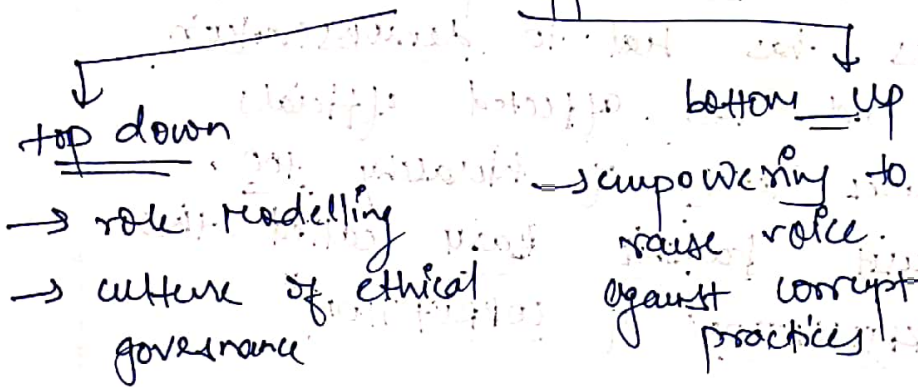 top down
→ role modelling
→ culture of ethical
governance
bottom up
→ empowering to
raise voice.
against corrupt
practices